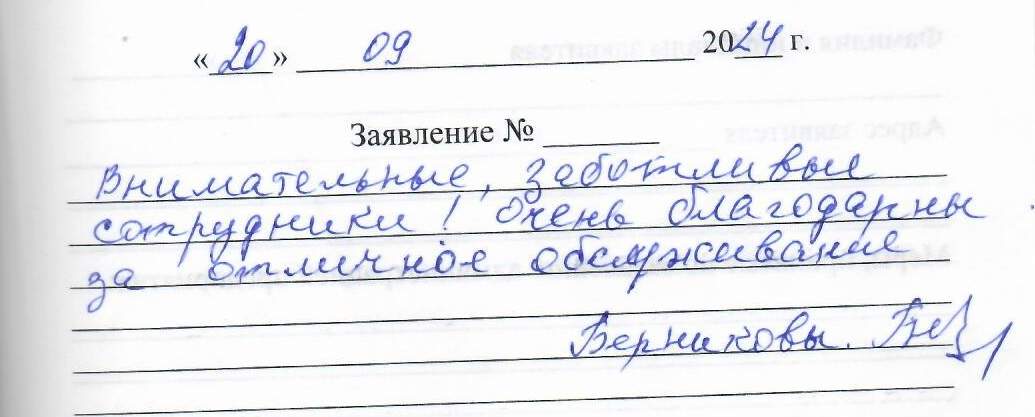 «20» 09 2024 г.
Заявление № ______
Внимательные, заботливые
сотрудники! Очень благодарны
за отличное обслуживание
Берниковы.